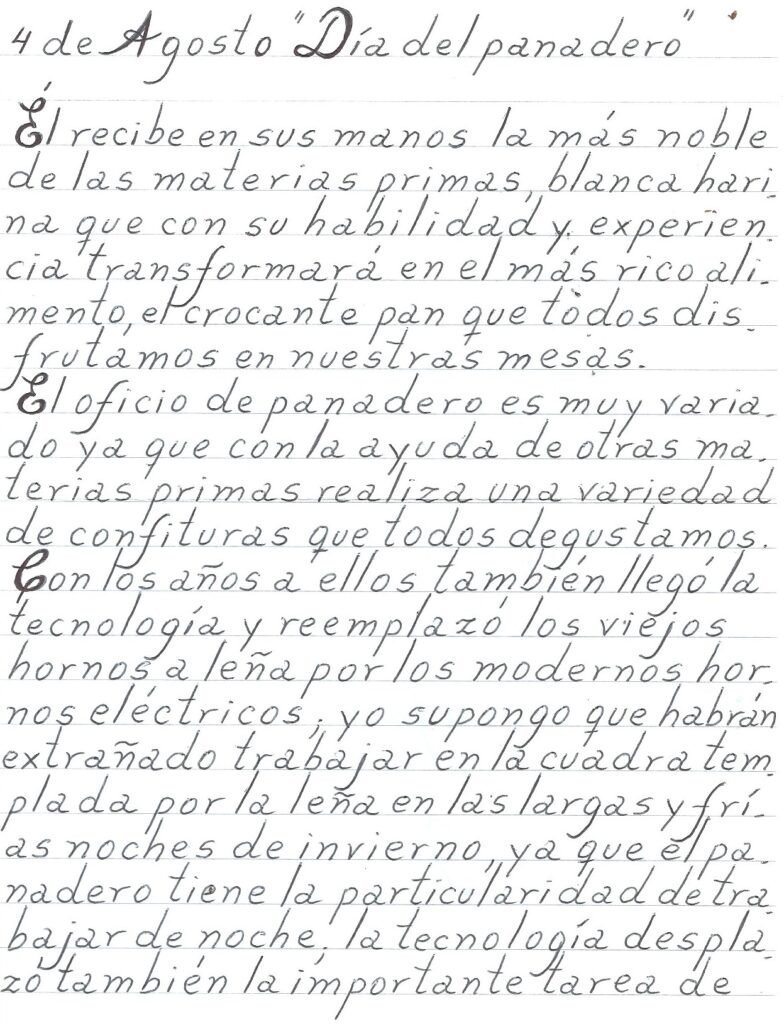 4 de Agosto "Día del panadero"
Él recibe en sus manos la más noble
de las materias primas, blanca hari-
na que con su habilidad y experien-
cia transformará en el más rico ali-
mento, el crocante pan que todos dis-
frutamos en nuestras mesas.
El oficio de panadero es muy varia-
do ya que con la ayuda de otras ma-
terias primas realiza una variedad
de confituras que todos degustamos.
Con los años a ellos también llegó la
tecnología y reemplazó los viejos
hornos a leña por los modernos hor-
nos eléctricos; yo supongo que habrán
extrañado trabajar en la cuadra tem-
plada por la leña en las largas y frí-
as noches de invierno, ya que el pa-
nadero tiene la particularidad de tra-
bajar de noche; la tecnología despla-
zó también la importante tarea de